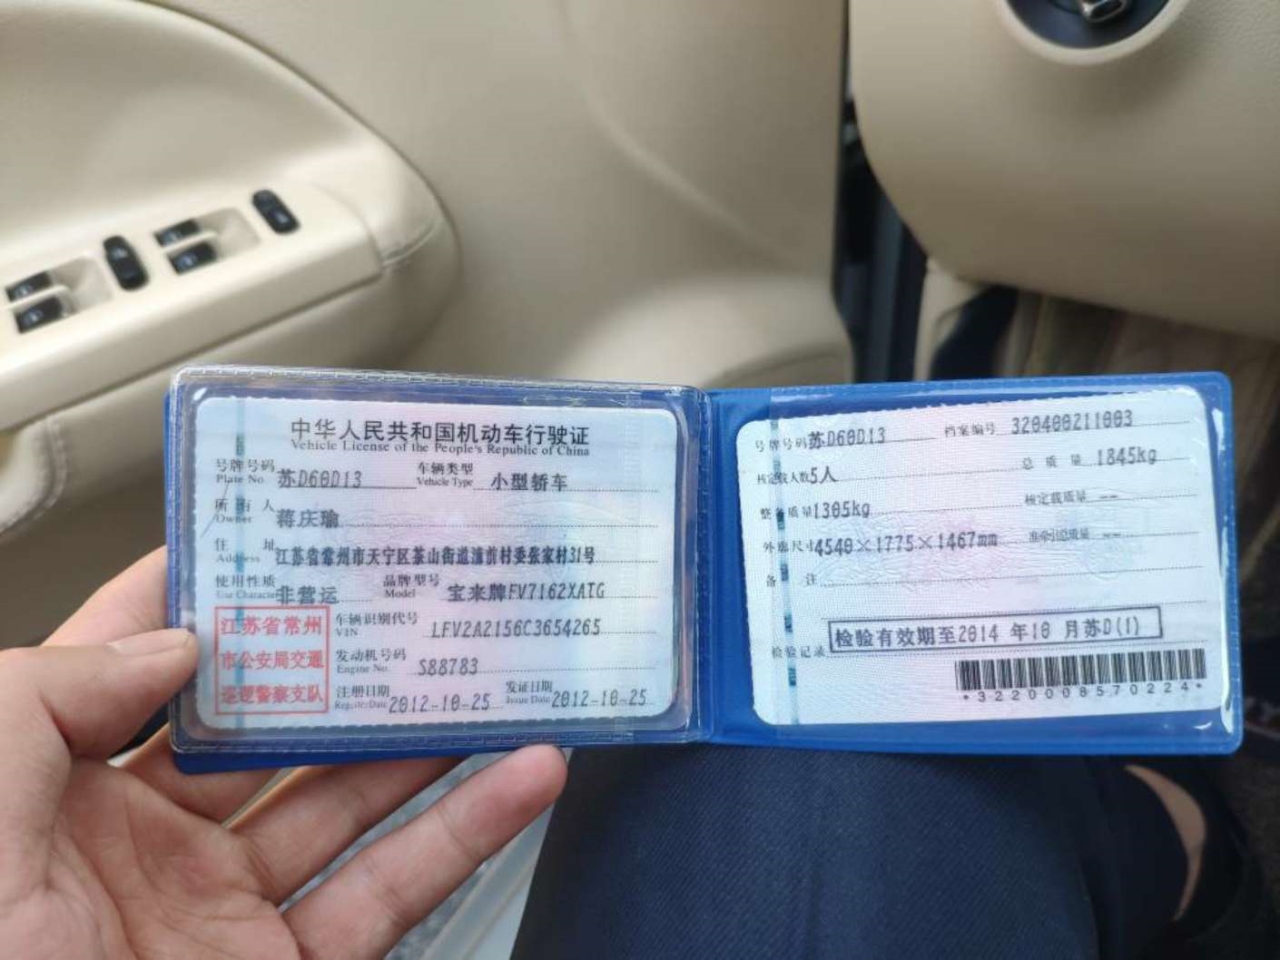 中华人民共和国机动车行驶证
Vehicle License of the People's Republic of China
号牌号码 苏D60D13 车辆类型 小型轿车
Plate No. Vehicle Type
所有人 蒋庆瑜
Owner
住址 江苏省常州市天宁区茶山街道浦前村委张家村31号
Address
使用性质 非营运 品牌型号 宝来牌FV7162XATG
Use Character Model
江苏省常州
市公安局交通
巡逻警察支队
车辆识别代号 LFV2A2156C3654265
VIN
发动机号码 S88783
Engine No.
注册日期 2012-10-25 发证日期 2012-10-25
Register Date Issue Date
号牌号码 苏D60D13 档案编号 320400211003
核定载人数 5人 总质量 1845kg
整备质量 1305kg 核定载质量 --
外廓尺寸 4540×1775×1467mm 准牵引总质量 --
备注
检验记录 检验有效期至2014 年10 月苏D(1)
*3220008570224*